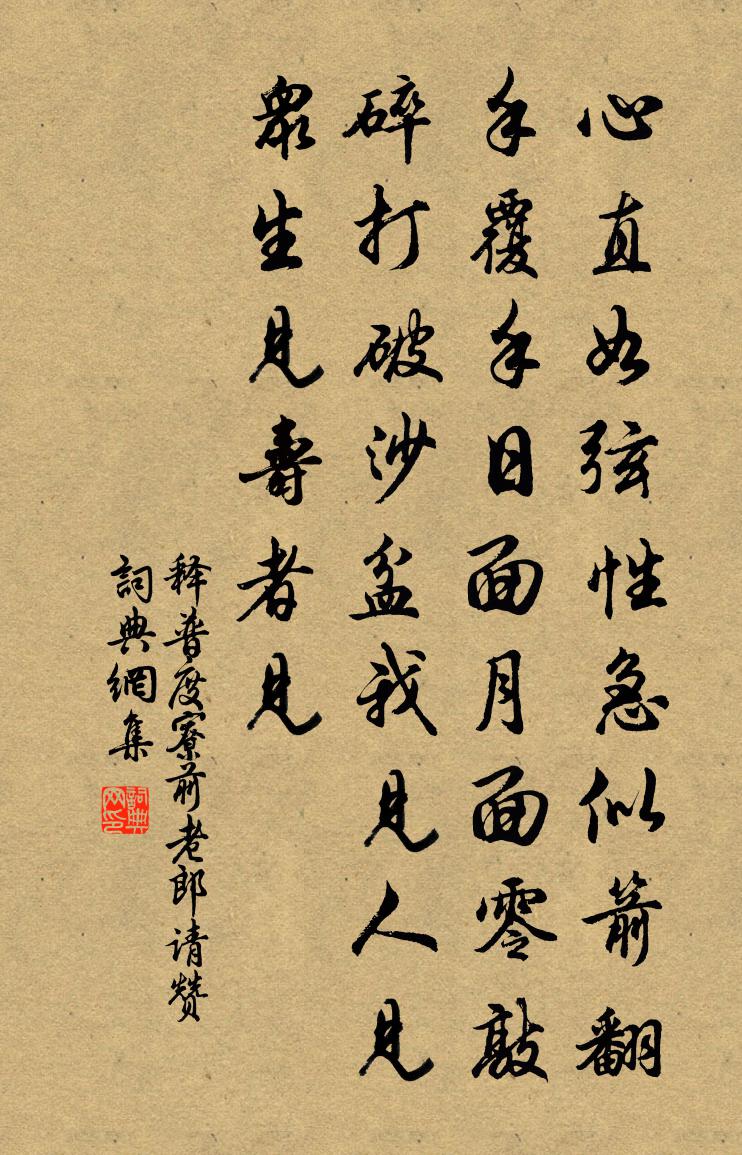 心直如弦性急似箭翻
手覆手日面月面零敲
碎打破沙盆我見人見
眾生見壽者見
释普度寮前老郎请赞
詞典網集
詞典网印